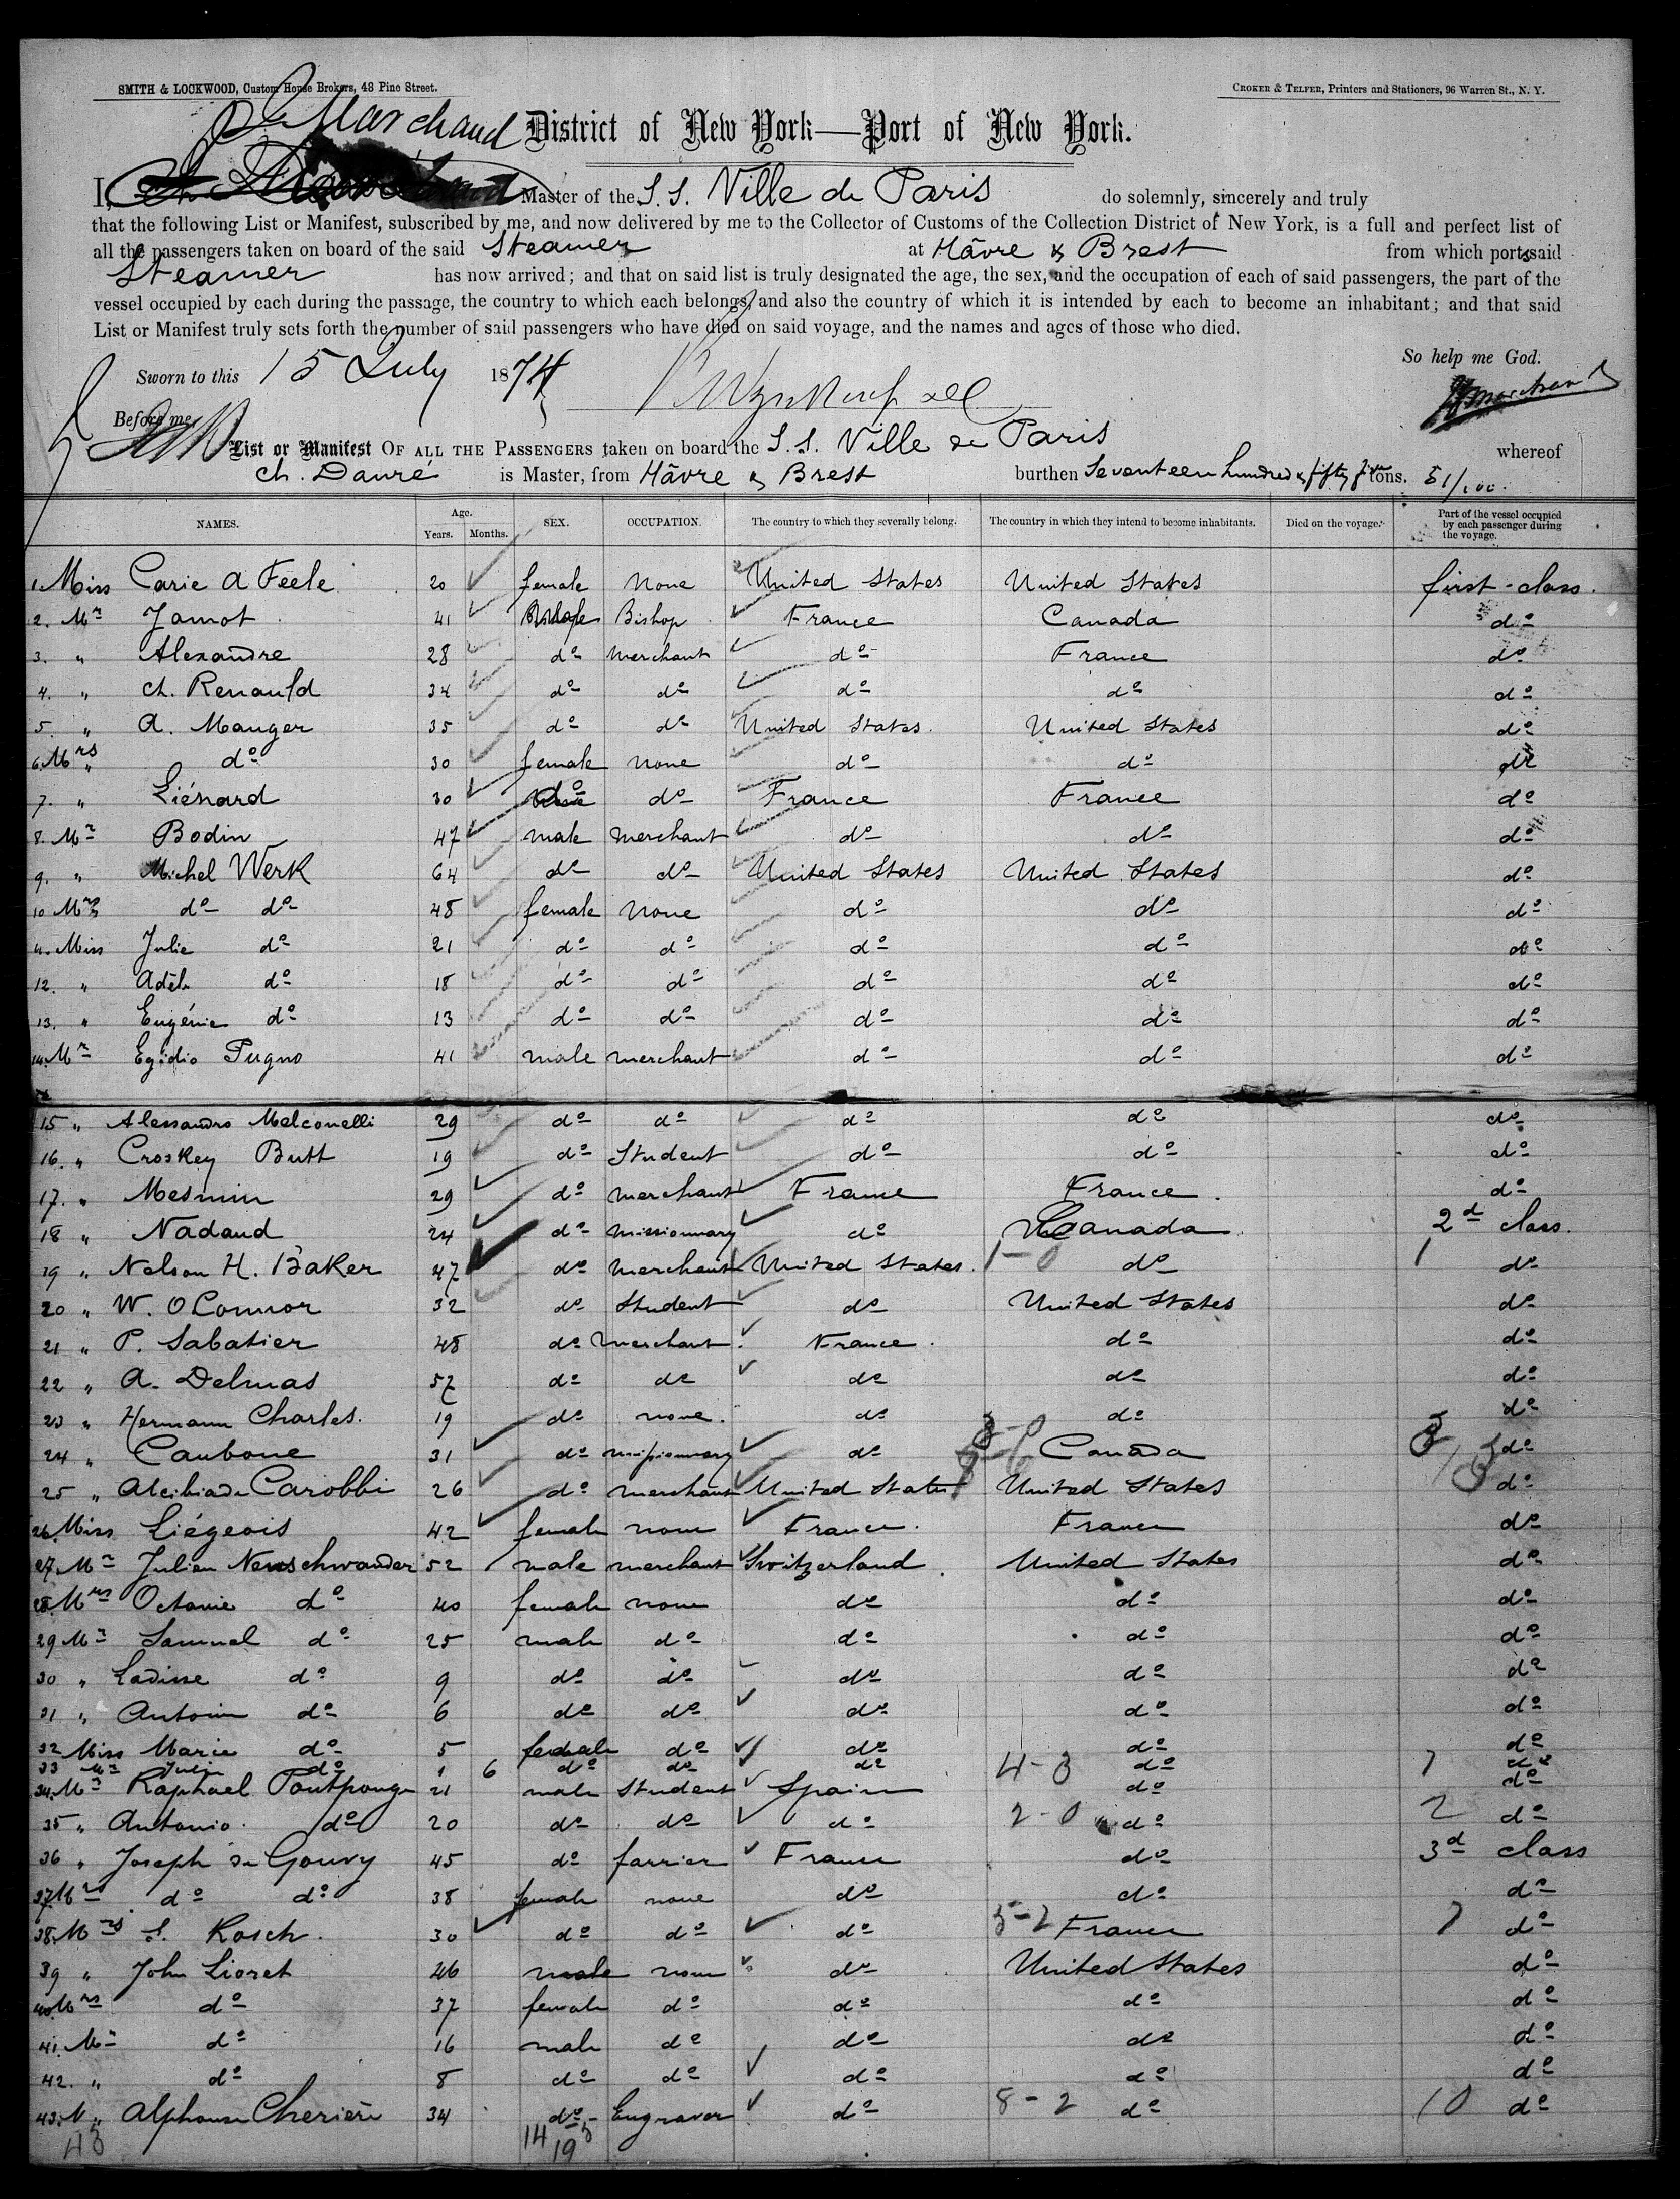 SMITH & LOCKWOOD, Custom House Brokers, 48 Pine Street.
CROKER & TELFER, Printers and Stationers, 96 Warren St., N. Y.
Marchand
District of New York—Port of New York.
I, Master of the S. S. Ville de Paris do solemnly, sincerely and truly
that the following List or Manifest, subscribed by me, and now delivered by me to the Collector of Customs of the Collection District of New York, is a full and perfect list of
all the passengers taken on board of the said Steamer at Hâvre & Brest from which ports said
Steamer has now arrived; and that on said list is truly designated the age, the sex, and the occupation of each of said passengers, the part of the
vessel occupied by each during the passage, the country to which each belongs, and also the country of which it is intended by each to become an inhabitant; and that said
List or Manifest truly sets forth the number of said passengers who have died on said voyage, and the names and ages of those who died.
So help me God.
Sworn to this 15 July 1874
Before me
List or Manifest OF ALL THE PASSENGERS taken on board the S. S. Ville de Paris whereof
Ch. Dauré is Master, from Hâvre & Brest burthen Seventeen hundred & fifty five tons. 51/100.
NAMES. Age. Years. Months. SEX. OCCUPATION. The country to which they severally belong. The country in which they intend to become inhabitants. Died on the voyage. Part of the vessel occupied by each passenger during the voyage.
1. Miss Carie A Feele 20 female None United States United States first-class.
2. Mr Jamot 41 Bishop France Canada do
3. " Alexandre 28 do merchant do France do
4. " Ch. Renauld 34 do do do do do
5. " A. Mauger 35 do do United States. United States do
6. Mrs " do 30 female none do do do
7. " Liénard 30 do do France France do
8. Mr Bodin 47 male merchant do do do
9. " Michel Werk 64 do do United States United States do
10 Mrs do do 48 female None do do do
11. Miss Julie do 21 do do do do do
12. " Adèle do 18 do do do do do
13. " Eugénie do 13 do do do do do
14. Mr Egidio Pugno 41 male merchant do do do
15 " Alessandro Malconelli 29 do do do do do
16. " Croskey Butt 19 do Student do do do
17. " Mesmin 29 do merchant France France. do
18 " Nadaud 24 do missionnary do Canada 2d class.
19 " Nelson H. Baker 47 do merchant United States. 1-0 do 1 do
20 " W. OConnor 32 do Student do United States do
21 " P. Sabatier 48 do merchant. France. do do
22 " A. Delmas 57 do do do do do
23 " Hermann Charles. 19 do none. do do do
24 " Caubone 31 do missionnary do Canada do
25 " Alcibiade Carobbi 26 do merchant United States United States do
26 Miss Liégeois 42 female none France. France do
27. Mr Julien Neuschwander 52 male merchant Switzerland United States do
28. Mrs Octavie do 40 female none do do do
29 Mr Samuel do 25 male do do do do
30 " Ladisse do 9 do do do do do
31 " Antoine do 6 do do do do do
32 Miss Marie do 5 female do do do do
33 Julie do 1 6 do do do 4-3 do 7 do
34. Mr Raphael 21 male Student Spain do do
35 " Antonio. do 20 do do do 2-0 do 2 do
36 " Joseph de Gouvy 45 do farrier France do 3d class
37 Mrs do do 38 female none do do do
38. Mrs S. Rosch. 30 do do do 5-2 France 7 do
39 " John Lioret 46 male none do United States do
40 Mrs do 37 female do do do do
41. Mr do 16 male do do do do
42. " do 8 do do do do do
43. " Alphonse Cherière 34 do Engraver do 8-2 do 10 do
43 14 19